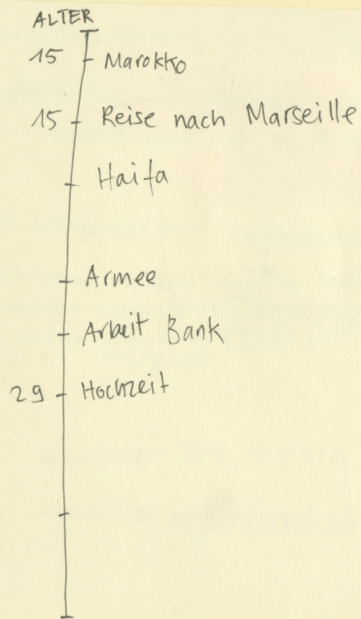 ALTER
15 Marokko
15 Reise nach Marseille
Haifa
Armee
Arbeit Bank
29 Hochzeit